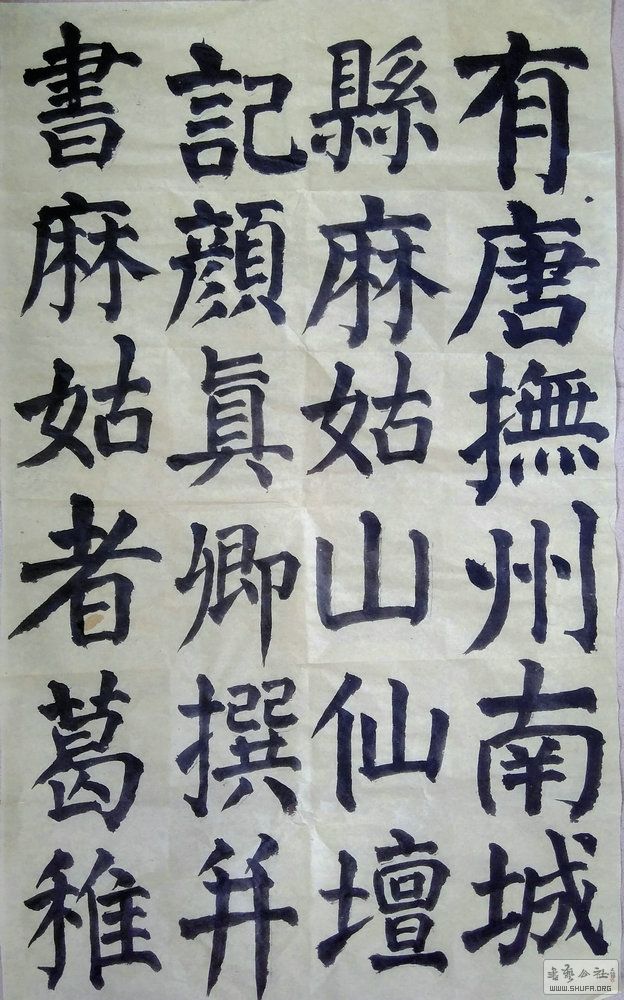 有唐撫州南城
縣麻姑山仙壇
記顏眞卿撰并
書麻姑者葛稚
WWW.SHUFA.ORG